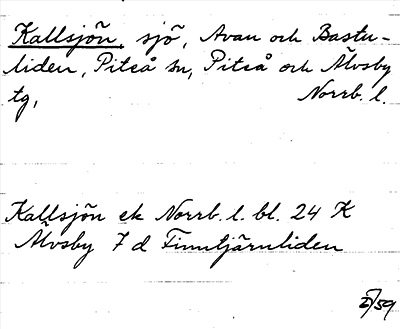 Kallsjön, sjö, Avan och Bastu-
liden, Piteå sn, Piteå och Älvsby
tg, Norrb. l.
Kallsjön ek Norrb. l. bl. 24 K
Älvsby 7 d Finntjärnliden
/59